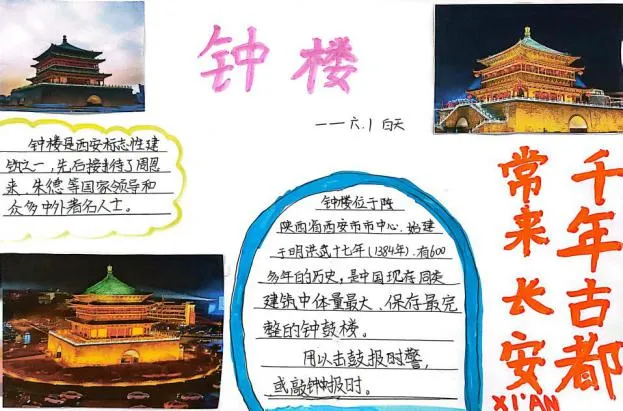 钟楼
——六.1 白天
钟楼是西安标志性建
筑之一,先后接待了周恩
来、朱德等国家领导和
众多中外著名人士。
钟楼位于陕
陕西省西安市市中心.始建
于明洪武十七年(1384年).有600
多年的历史,是中国现存同类
建筑中体量最大、保存最完
整的钟鼓楼。
用以击鼓报时警,
或敲钟报时。
千年古都
常来长安
XI'AN